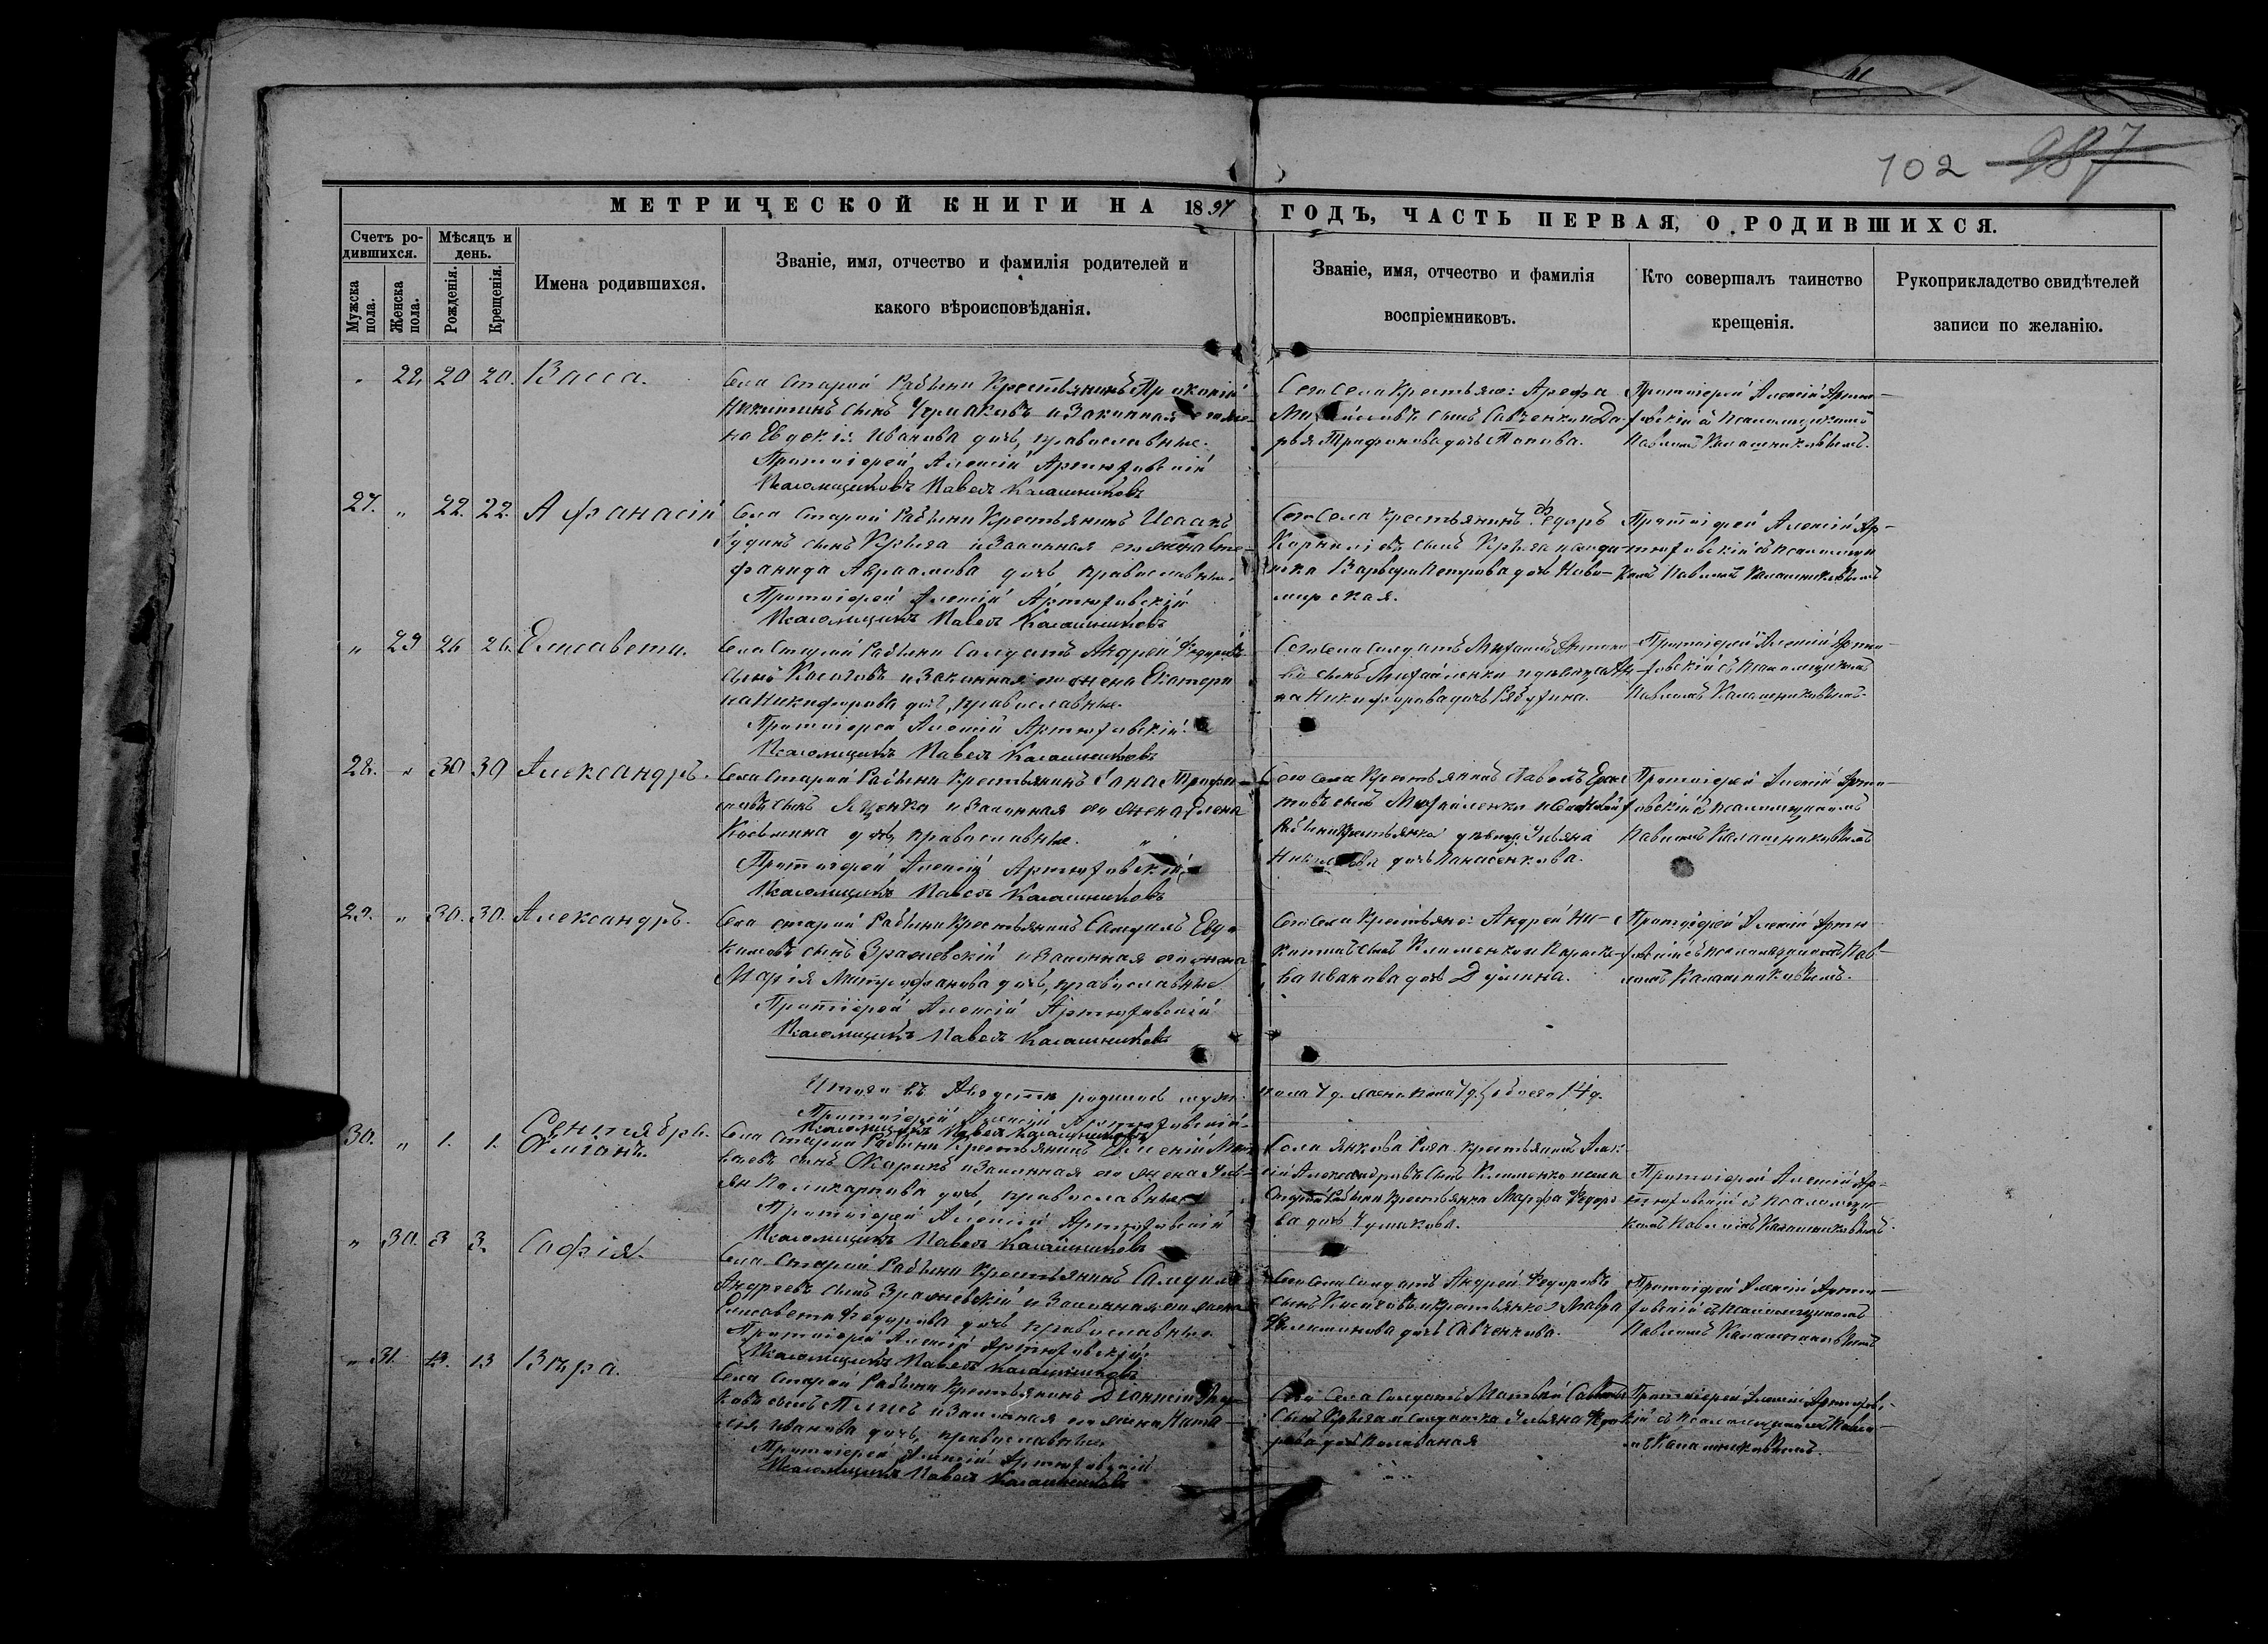 102 987
МЕТРИЧЕСКОЙ КНИГИ НА 1897 ГОДЪ, ЧАСТЬ ПЕРВАЯ, О РОДИВШИХСЯ.
Счетъ ро-
дившихся.
Мужска пола.
Женска пола.
Мѣсяцъ и
день.
Рожденія.
Крещенія.
Имена родившихся.
Званіе, имя, отчество и фамилія родителей и
какого вѣроисповѣданія.
Званіе, имя, отчество и фамилія
воспріемниковъ.
Кто совершалъ таинство
крещенія.
Рукоприкладство свидѣтелей
записи по желанію.
" 22. 20 20. Васса.
Села Старой Рябины Крестьянинъ Прокопій
Никитинъ сынъ Чумаковъ и Законная его же-
на Евдокія Иванова дочь, православные.
Протоіерей Алексій Артюховскій
Псаломщикъ Павелъ Калашниковъ
Того Села Крестьяне: Арефа
сынъ Савченко и Да-
рья Трофимова дочь Попова.
Протоіерей Алексій Артю-
ховскій съ Псаломщикомъ
Павломъ Калашниковымъ.
27. " 22. 22. Афанасій
Села Старой Рябины Крестьянинъ Исаакъ
Іудинъ сынъ Крыга и Законная его жена Сте-
фанида Авраамова дочь православные.
Протоіерей Алексій Артюховскій
Псаломщикъ Павелъ Калашниковъ
Того Села Крестьянинъ Федоръ
Корниліевъ сынъ Крыга и солдат-
ка Варвара Петрова дочь Ново-
мирская.
Протоіерей Алексій Ар-
тюховскій съ Псаломщи
комъ Павломъ Калашниковымъ
" 29 26 26. Елисавета.
Села Старой Рябины Солдатъ Андрей Федоровъ
сынъ Косаговъ и Законная его жена Екатери
на Никифорова дочь, православные.
Протоіерей Алексій Артюховскій
Псаломщикъ Павелъ Калашниковъ
Того Села Солдатъ
сынъ Михайленко и девица Ан-
на Никифорова дочь Рябухина.
Протоіерей Алексій Артю-
ховскій съ Псаломщикомъ
Павломъ Калашниковымъ.
28. " 30 30 Александръ.
Села Старой Рябины Крестьянинъ
сынъ Яценко и Законная его жена Елена
Косьмина дочь, православные.
Протоіерей Алексій Артюховскій
Псаломщикъ Павелъ Калашниковъ
Того Села Крестьянинъ Павелъ
сынъ Михайленко и Села Новой
Рябины Крестьянка девица Ульяна
дочь Панасенкова.
Протоіерей Алексій Артю-
ховскій съ Псаломщикомъ
Павломъ Калашниковымъ
29. " 30. 30. Александръ.
Села Старой Рябины Крестьянинъ Самуилъ Евдо
кимовъ сынъ Зражевскій и Законная его жена
Марія Митрофанова дочь, православные
Протоіерей Алексій Артюховскій
Псаломщикъ Павелъ Калашниковъ
Того Села Крестьяне: Андрей Ни-
китинъ сынъ Клименко и Параске-
ва Иванова дочь Думина.
Протоіерей Алексій Артю
ховскій съ Псаломщикомъ Пав-
ломъ Калашниковымъ.
Итого въ Августѣ родилось муж. пола 7 д. женск. пола 7 д. обоего 14 д.
Протоіерей Алексій Артюховскій.
Псаломщикъ Павелъ Калашниковъ
Сентябрь.
30. " 1. 1.
Села Старой Рябины Крестьянинъ
сынъ и Законная его жена
Поликарпова дочь, православные
Протоіерей Алексій Артюховскій
Псаломщикъ Павелъ Калашниковъ
Села Янкова Рога крестьянинъ
Александровъ сынъ Клименко и села
Старой Рябины Крестьянка Марфа Федоро
ва дочь Чумакова.
Протоіерей Алексій Ар-
тюховскій съ Псаломщи-
комъ Павломъ Калашниковымъ.
" 30. 3 3. Софія.
Села Старой Рябины Крестьянинъ Самуилъ
Андреевъ сынъ Зражевскій и Законная его жена
Елисавета Федорова дочь православные.
Протоіерей Алексій Артюховскій.
Псаломщикъ Павелъ Калашниковъ
Того Села Солдатъ Андрей Федоровъ
сынъ Косаговъ и крестьянка Мавра
дочь Савченкова.
Протоіерей Алексій Артю-
ховскій съ Псаломщикомъ
Павломъ Калашниковымъ
" 31. 13. 13 Вѣра.
Села Старой Рябины Крестьянинъ Діонисій
сынъ и Законная его жена Ната-
лія Иванова дочь, православные.
Протоіерей Алексій Артюховскій
Псаломщикъ Павелъ Калашниковъ
Того Села Солдатъ Матвей
сынъ Крыга и солдатка Ульяна
дочь
Протоіерей Алексій Артюховс-
кій съ Псаломщикомъ Павло
мъ Калашниковымъ.